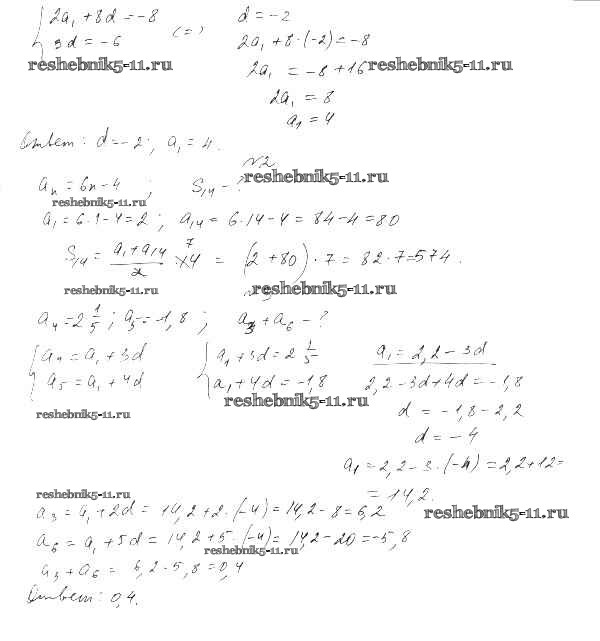 { 2a₁ + 8d = -8
3d = -6 (=)
d = -2
2a₁ + 8·(-2) = -8
2a₁ = -8 + 16
2a₁ = 8
a₁ = 4
reshebnik5-11.ru reshebnik5-11.ru
Ответ: d = -2; a₁ = 4.
N2
reshebnik5-11.ru
aₙ = 6n - 4; S₁₄ - ?
reshebnik5-11.ru
a₁ = 6·1 - 4 = 2; a₁₄ = 6·14 - 4 = 84 - 4 = 80
S₁₄ = (a₁ + a₁₄)/2 · 14 7 = (2 + 80)·7 = 82·7 = 574.
reshebnik5-11.ru reshebnik5-11.ru
a₄ = 2 1/5; a₅ = -1,8; a₃ + a₆ - ?
{ a₄ = a₁ + 3d
a₅ = a₁ + 4d
{ a₁ + 3d = 2 1/5
a₁ + 4d = -1,8
a₁ = 2,2 - 3d
2,2 - 3d + 4d = -1,8
reshebnik5-11.ru reshebnik5-11.ru
d = -1,8 - 2,2
d = -4
a₁ = 2,2 - 3·(-4) = 2,2 + 12 =
= 14,2.
reshebnik5-11.ru
a₃ = a₁ + 2d = 14,2 + 2·(-4) = 14,2 - 8 = 6,2
reshebnik5-11.ru
a₆ = a₁ + 5d = 14,2 + 5·(-4) = 14,2 - 20 = -5,8
reshebnik5-11.ru
a₃ + a₆ = 6,2 - 5,8 = 0,4
Ответ: 0,4.